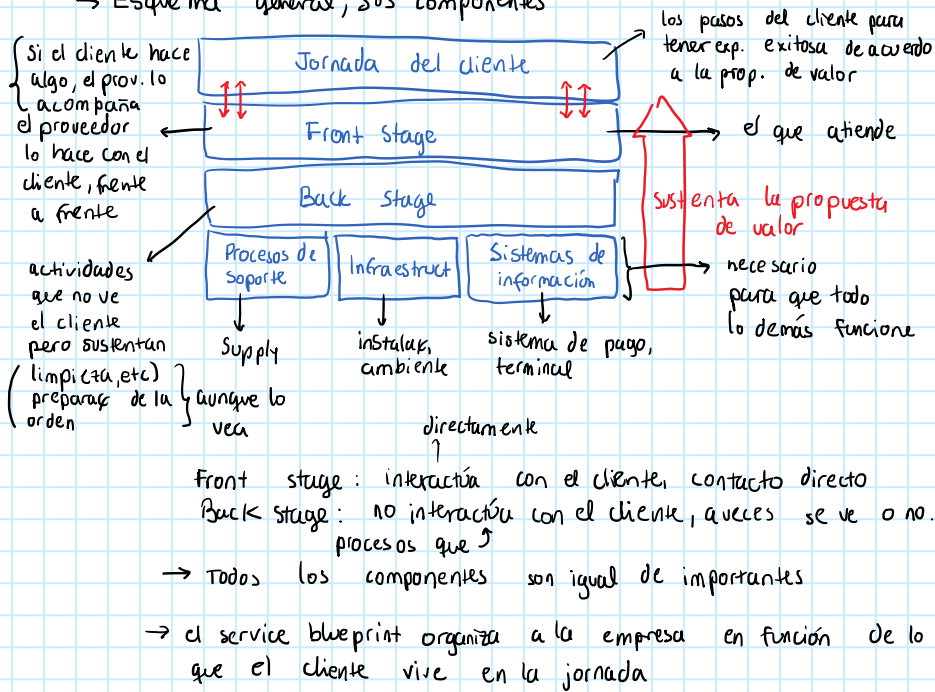 → Esquema general, sus componentes
los pasos del cliente para
tener exp. exitosa de acuerdo
a la prop. de valor
Si el cliente hace
algo, el prov. lo
acompaña
Jornada del cliente
el proveedor
lo hace con el
cliente, frente
a frente
Front stage
el que atiende
Back stage
sustenta la propuesta
de valor
Procesos de
soporte
Infraestruct
Sistemas de
información
necesario
para que todo
lo demás funcione
actividades
que no ve
el cliente
pero sustentan
(limpieza, etc)
preparaç de la
orden
aunque lo
vea
Supply
instalaç,
ambiente
sistema de pago,
terminal
directamente
Front stage: interactúa con el cliente, contacto directo
Back stage: no interactúa con el cliente, aveces se ve o no.
procesos que
→ Todos los componentes son igual de importantes
→ el service blueprint organiza a la empresa en función de lo
que el cliente vive en la jornada